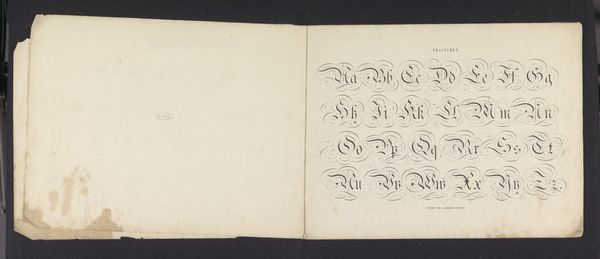 FRACTUREN
Aa Bb Cc Dd Ee Ff Gg
Hh Ii Kk Ll Mm Nn
Oo Pp Qq Rr Ss Tt
Uu Vv Ww Xx Yy Zz.